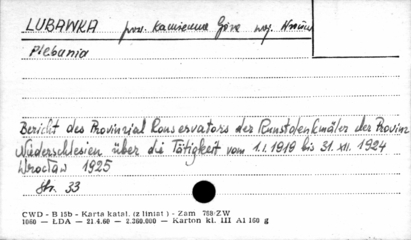 LUBAWKA pow. Kamienna Góra woj.
Plebania
Bericht des Provinzial Konservators der Kunstdenkmäler der Provinz
Niederschlesien über die Tätigkeit vom 1.I.1919 bis 31.XII.1924
Wrocław 1925
Str. 33
CWD - B 15b - Karta katal. (z liniat ) - Zam 768/ZW
1060 — ŁDA — 21.4.60 — 2.360.000 — Karton kl. III A1 160 g